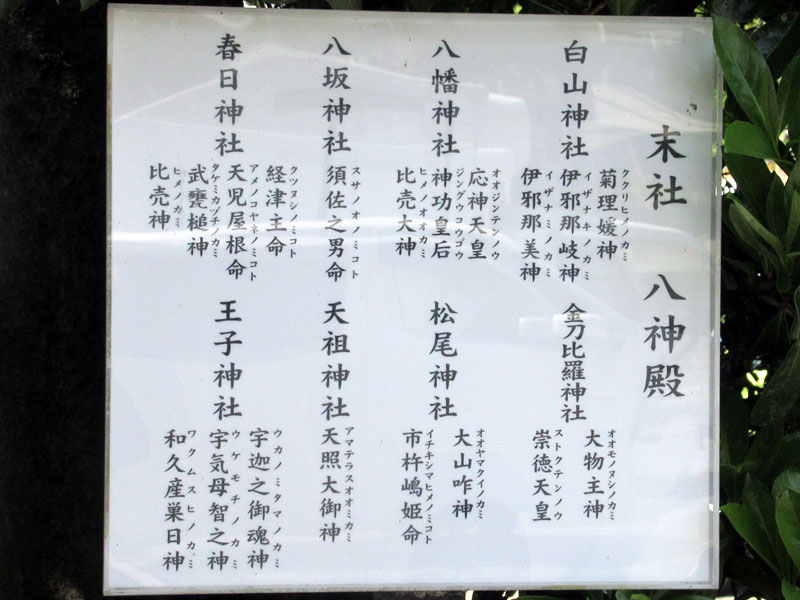 末社 八神殿
白山神社
ククリヒメノカミ
菊理媛神
イザナキノカミ
伊邪那岐神
イザナミノカミ
伊邪那美神
金刀比羅神社
オオモノヌシノカミ
大物主神
ストクテンノウ
崇徳天皇
八幡神社
オオジンテンノウ
応神天皇
ジングウコウゴウ
神功皇后
ヒメノオオカミ
比売大神
松尾神社
オオヤマクイノカミ
大山咋神
イチキシマヒメノミコト
市杵嶋姫命
八坂神社
スサノオノミコト
須佐之男命
天祖神社
アマテラスオオミカミ
天照大御神
春日神社
クツヌシノミコト
経津主命
アメノコヤネノミコト
天児屋根命
タケミカヅチノカミ
武甕槌神
ヒメノカミ
比売神
王子神社
ウカノミタマノカミ
宇迦之御魂神
ウケモチノカミ
宇気母智之神
ワクムスヒノカミ
和久産巣日神